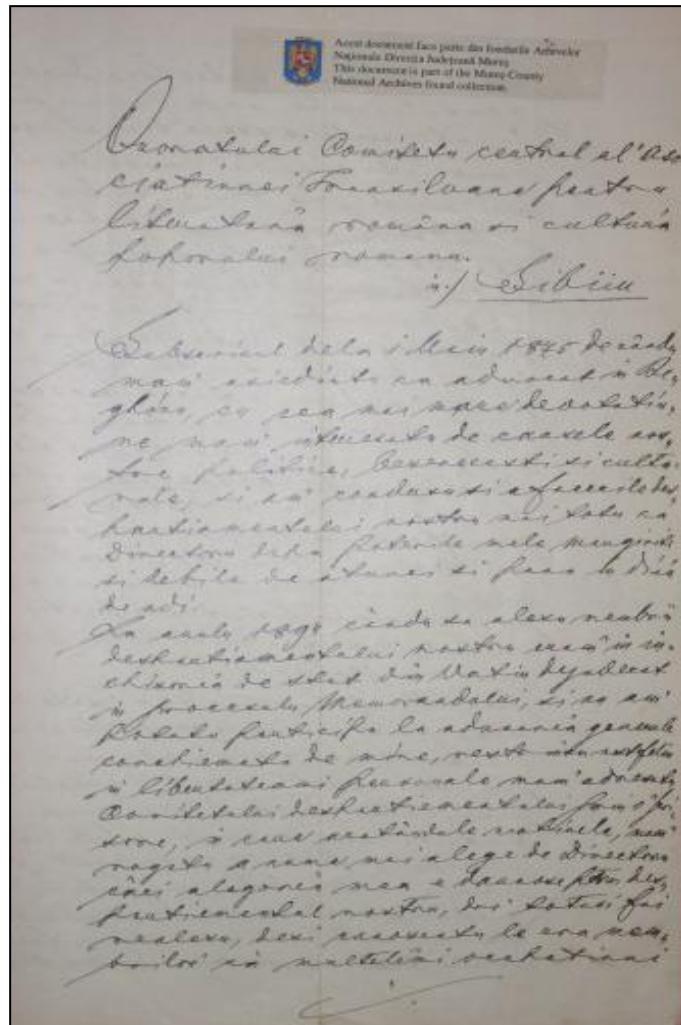 Acest document face parte din fondurile Arhivelor
Naționale Divizia Județeană Mureș
This document is part of the Mureș County
National Archives found collection.
Onoratului Comitetu central al' Aso
ciatiunei Transilvane pentru
literatura romana si cultura
poporului romanu.
in / Sibiiu
Subscrisul dela 1 Maiu 1875 de candu
mam' asiediatu ca advocat in Be-
ghinu, cu cea mai mare devotatiu-
ne mam' interesatu de causele nos-
tre politice, besericesti si cultu-
rale, si am' condusu si afacerile des-
partiamentului nostru mai totu ca
Directoru dela poterile mele marginite
si debile de atunci si pana in diua
de adi.
In anulu 1894 candu sa alesu membrii
despartiamentului nostru eram in in-
chisoria de stat din Vatiu dejudecat
in procesulu Memorandului, si nu am'
potutu participa la adunarea generale
conchiemata de mine,
in libertatea mi personale mam' adresatu
Comitetului despartiementului
in care aratandule motivele, mam'
rogatu a nume mai alege de Directoru
caci alegerea mea e daunosa ptru des-
partiementul nostru, dar totusi fui
realesu, desi cunoscutu le era mem-
briloru ca multele